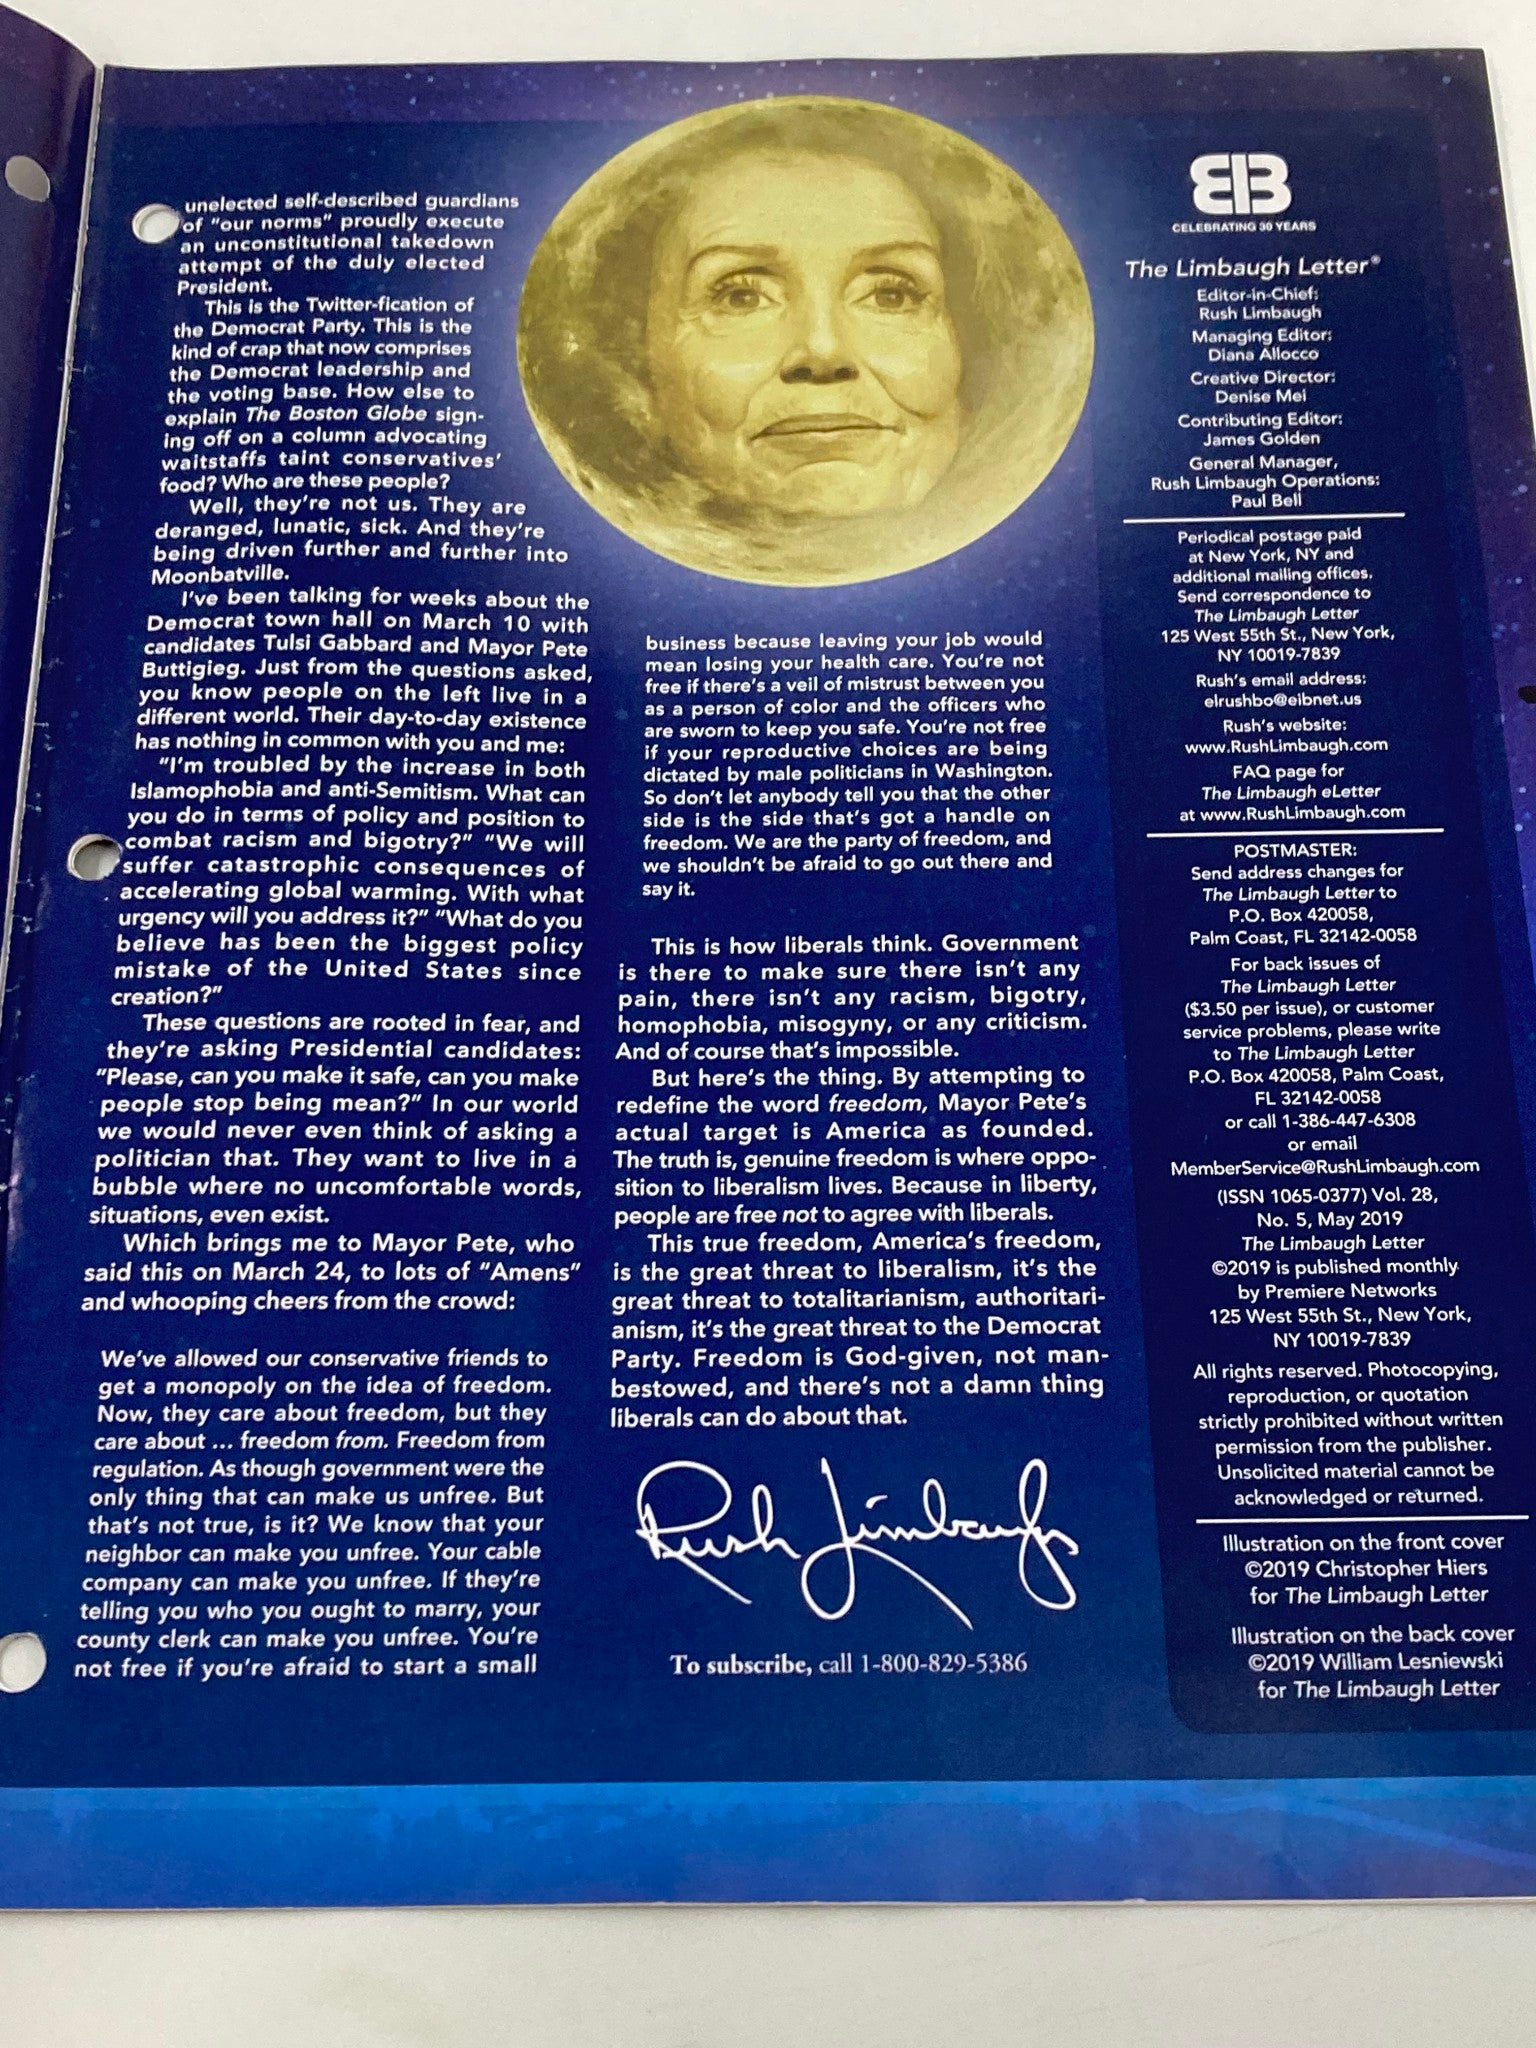 unelected self-described guardians
of "our norms" proudly execute
an unconstitutional takedown
attempt of the duly elected
President.
This is the Twitter-fication of
the Democrat Party. This is the
kind of crap that now comprises
the Democrat leadership and
the voting base. How else to
explain The Boston Globe sign-
ing off on a column advocating
waitstaffs taint conservatives'
food? Who are these people?
Well, they're not us. They are
deranged, lunatic, sick. And they're
being driven further and further into
Moonbatville.
I've been talking for weeks about the
Democrat town hall on March 10 with
candidates Tulsi Gabbard and Mayor Pete
Buttigieg. Just from the questions asked,
you know people on the left live in a
different world. Their day-to-day existence
has nothing in common with you and me:
"I'm troubled by the increase in both
Islamophobia and anti-Semitism. What can
you do in terms of policy and position to
combat racism and bigotry?" "We will
suffer catastrophic consequences of
accelerating global warming. With what
urgency will you address it?" "What do you
believe has been the biggest policy
mistake of the United States since
creation?"
These questions are rooted in fear, and
they're asking Presidential candidates:
"Please, can you make it safe, can you make
people stop being mean?" In our world
we would never even think of asking a
politician that. They want to live in a
bubble where no uncomfortable words,
situations, even exist.
Which brings me to Mayor Pete, who
said this on March 24, to lots of "Amens"
and whooping cheers from the crowd:
We've allowed our conservative friends to
get a monopoly on the idea of freedom.
Now, they care about freedom, but they
care about ... freedom from. Freedom from
regulation. As though government were the
only thing that can make us unfree. But
that's not true, is it? We know that your
neighbor can make you unfree. Your cable
company can make you unfree. If they're
telling you who you ought to marry, your
county clerk can make you unfree. You're
not free if you're afraid to start a small
business because leaving your job would
mean losing your health care. You're not
free if there's a veil of mistrust between you
as a person of color and the officers who
are sworn to keep you safe. You're not free
if your reproductive choices are being
dictated by male politicians in Washington.
So don't let anybody tell you that the other
side is the side that's got a handle on
freedom. We are the party of freedom, and
we shouldn't be afraid to go out there and
say it.
This is how liberals think. Government
is there to make sure there isn't any
pain, there isn't any racism, bigotry,
homophobia, misogyny, or any criticism.
And of course that's impossible.
But here's the thing. By attempting to
redefine the word freedom, Mayor Pete's
actual target is America as founded.
The truth is, genuine freedom is where oppo-
sition to liberalism lives. Because in liberty,
people are free not to agree with liberals.
This true freedom, America's freedom,
is the great threat to liberalism, it's the
great threat to totalitarianism, authoritari-
anism, it's the great threat to the Democrat
Party. Freedom is God-given, not man-
bestowed, and there's not a damn thing
liberals can do about that.
Rush Limbaugh
To subscribe, call 1-800-829-5386
EIB
CELEBRATING 30 YEARS
The Limbaugh Letter®
Editor-in-Chief:
Rush Limbaugh
Managing Editor:
Diana Allocco
Creative Director:
Denise Mei
Contributing Editor:
James Golden
General Manager,
Rush Limbaugh Operations:
Paul Bell
Periodical postage paid
at New York, NY and
additional mailing offices.
Send correspondence to
The Limbaugh Letter
125 West 55th St., New York,
NY 10019-7839
Rush's email address:
elrushbo@eibnet.us
Rush's website:
www.RushLimbaugh.com
FAQ page for
The Limbaugh eLetter
at www.RushLimbaugh.com
POSTMASTER:
Send address changes for
The Limbaugh Letter to
P.O. Box 420058,
Palm Coast, FL 32142-0058
For back issues of
The Limbaugh Letter
($3.50 per issue), or customer
service problems, please write
to The Limbaugh Letter
P.O. Box 420058, Palm Coast,
FL 32142-0058
or call 1-386-447-6308
or email
MemberService@RushLimbaugh.com
(ISSN 1065-0377) Vol. 28,
No. 5, May 2019
The Limbaugh Letter
©2019 is published monthly
by Premiere Networks
125 West 55th St., New York,
NY 10019-7839
All rights reserved. Photocopying,
reproduction, or quotation
strictly prohibited without written
permission from the publisher.
Unsolicited material cannot be
acknowledged or returned.
Illustration on the front cover
©2019 Christopher Hiers
for The Limbaugh Letter
Illustration on the back cover
©2019 William Lesniewski
for The Limbaugh Letter